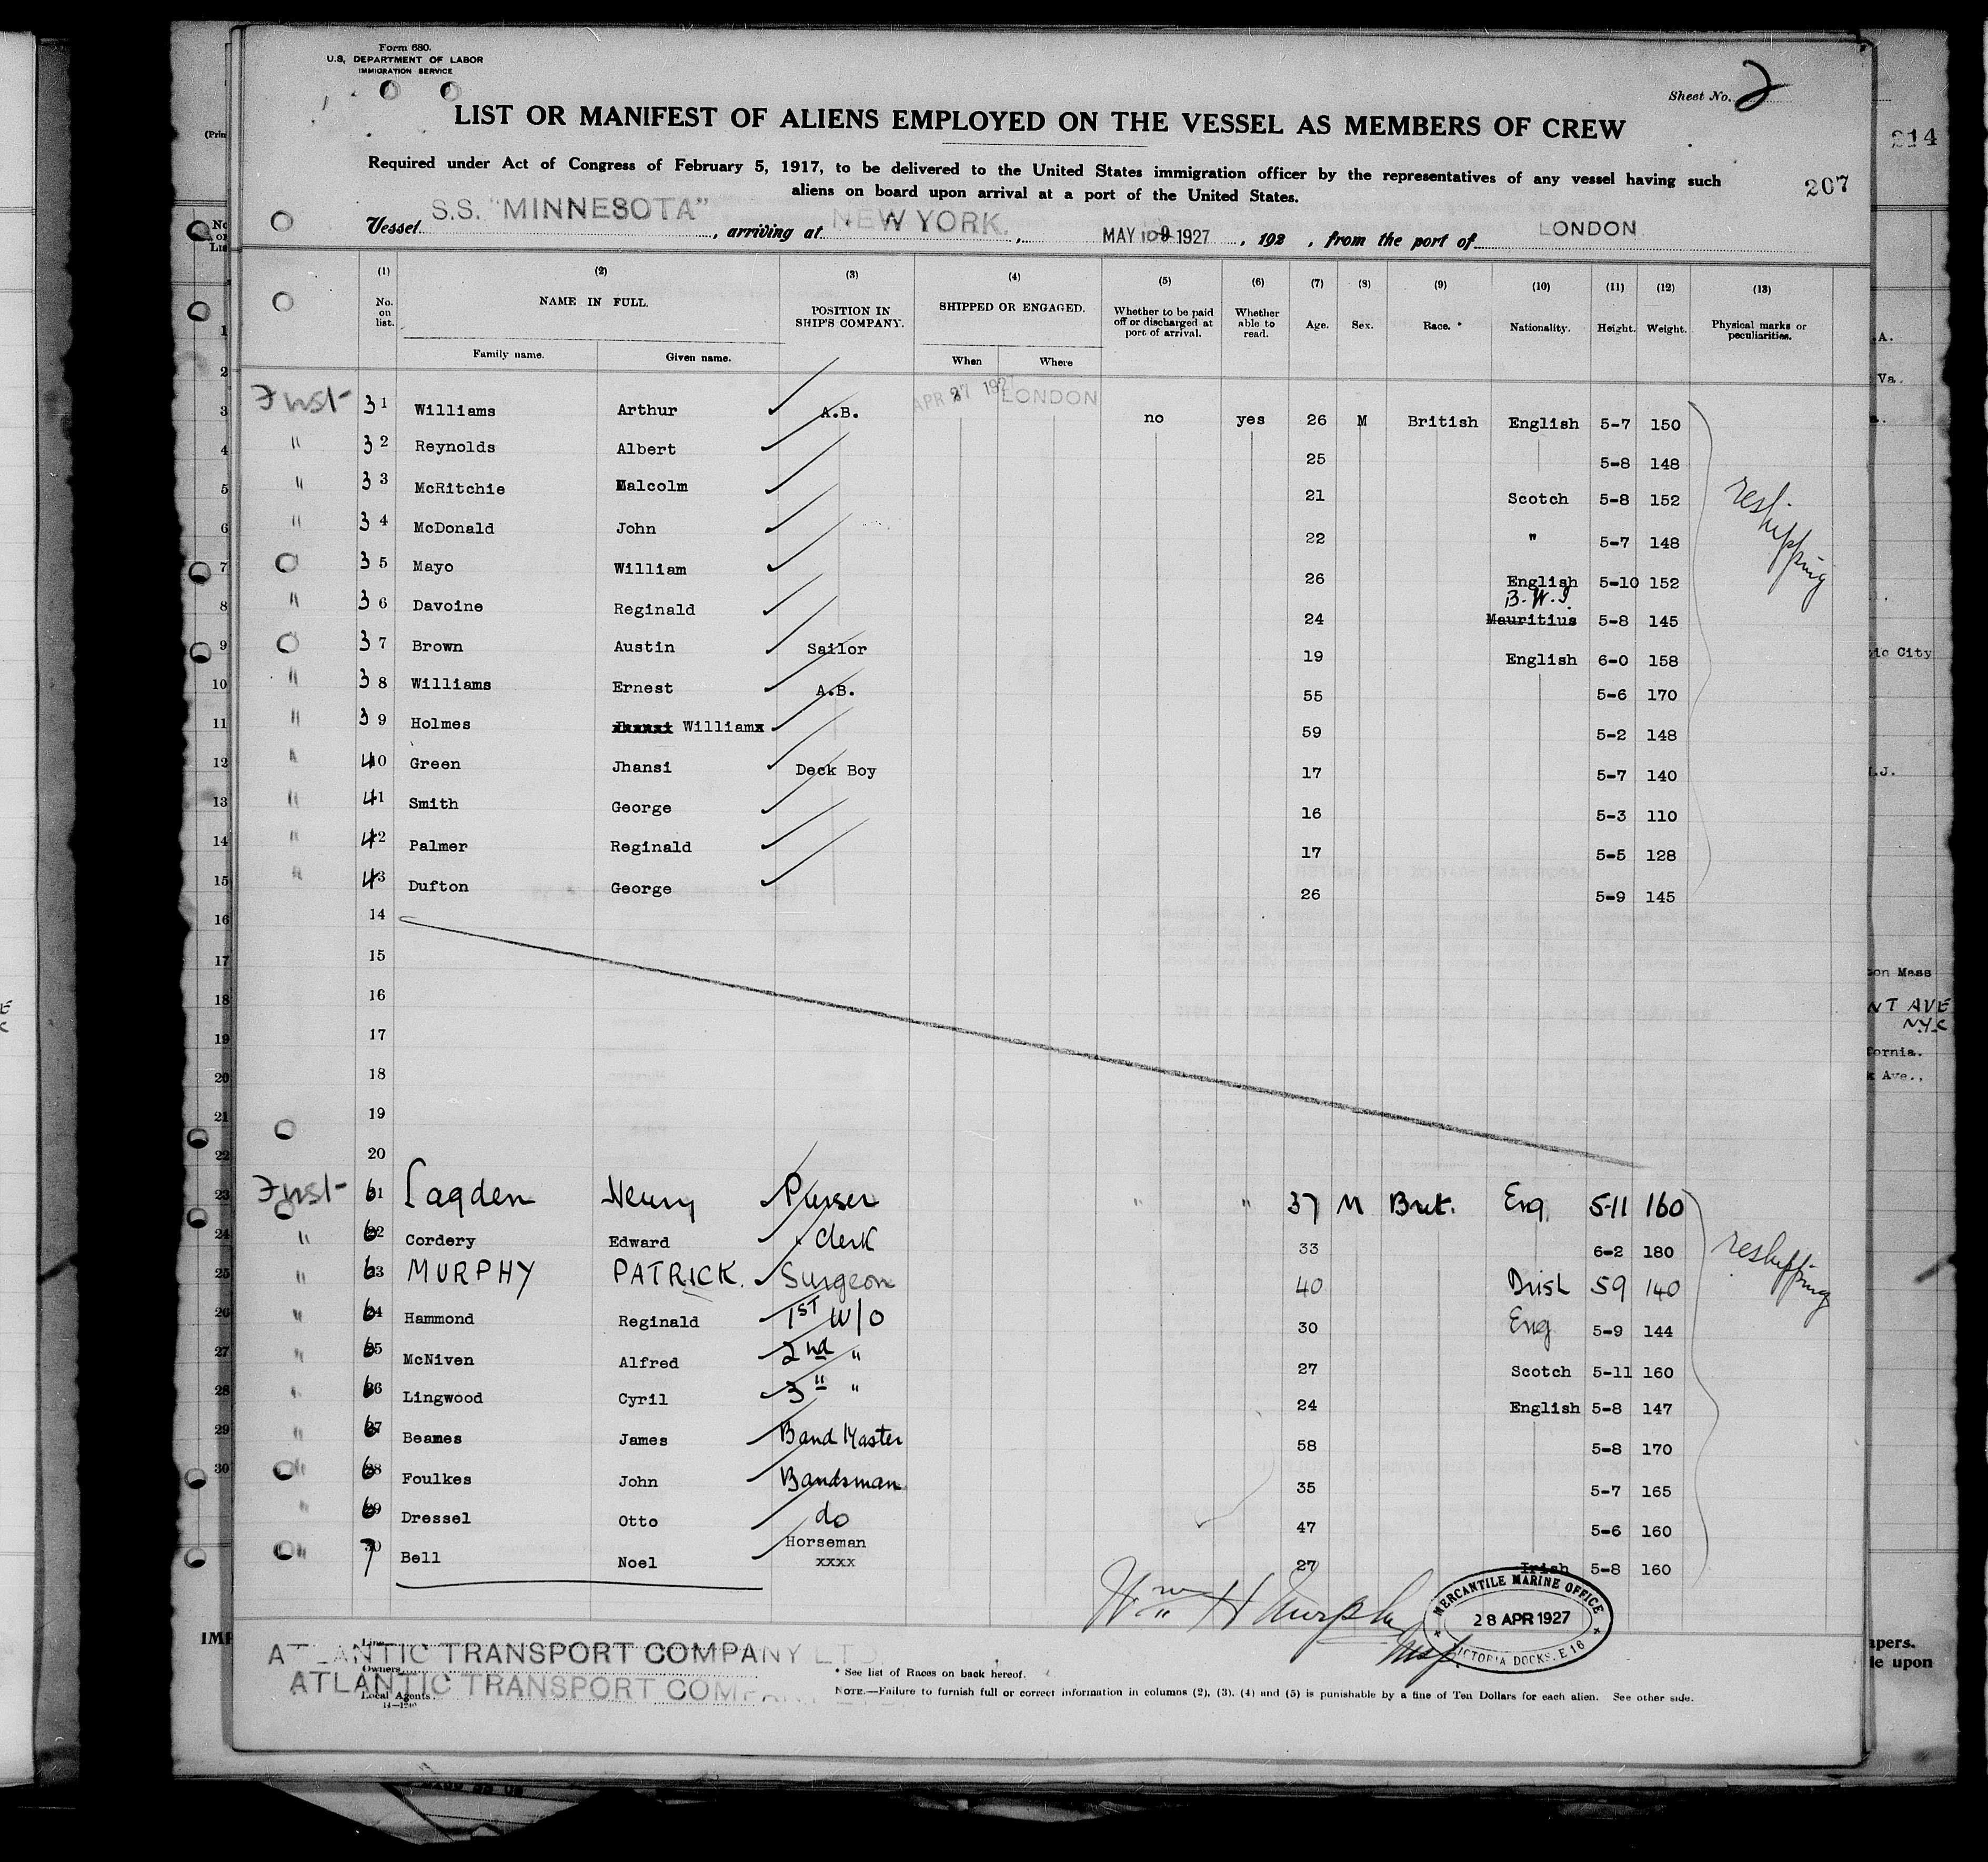 Form 680.
U.S. DEPARTMENT OF LABOR
IMMIGRATION SERVICE
Sheet No. 2
LIST OR MANIFEST OF ALIENS EMPLOYED ON THE VESSEL AS MEMBERS OF CREW
Required under Act of Congress of February 5, 1917, to be delivered to the United States immigration officer by the representatives of any vessel having such
aliens on board upon arrival at a port of the United States.
214
207
Vessel S.S. "MINNESOTA", arriving at NEW YORK, MAY 1927, 192 , from the port of LONDON
(1) (2) (3) (4) (5) (6) (7) (8) (9) (10) (11) (12) (13)
No. on list. NAME IN FULL. POSITION IN SHIP'S COMPANY. SHIPPED OR ENGAGED. Whether to be paid off or discharged at port of arrival. Whether able to read. Age. Sex. Race.* Nationality. Height. Weight. Physical marks or peculiarities.
Family name. Given name. When Where
First 31 Williams Arthur A.B. APR 27 1927 LONDON no yes 26 M British English 5-7 150
" 32 Reynolds Albert 25 5-8 148
" 33 McRitchie Malcolm 21 Scotch 5-8 152
reshipping
" 34 McDonald John 22 " 5-7 148
35 Mayo William 26 English 5-10 152
" 36 Davoine Reginald 24 B.W.I. Mauritius 5-8 145
37 Brown Austin Sailor 19 English 6-0 158
" 38 Williams Ernest A.B. 55 5-6 170
" 39 Holmes Williamx 59 5-2 148
" 40 Green Jhansi Deck Boy 17 5-7 140
" 41 Smith George 16 5-3 110
" 42 Palmer Reginald 17 5-5 128
" 43 Dufton George 26 5-9 145
14
15
16
17
18
19
20
First 61 Lagden Henry Purser " " 37 M Brit. Eng. 5-11 160
" 62 Cordery Edward " Clerk 33 6-2 180
reshipping
" 63 MURPHY PATRICK. Surgeon 40 Irish 59 140
" 64 Hammond Reginald 1ST W/O 30 Eng 5-9 144
" 65 McNiven Alfred 2nd " 27 Scotch 5-11 160
" 66 Lingwood Cyril 3" " 24 English 5-8 147
" 67 Beames James Band Master 58 5-8 170
" 68 Foulkes John Bandsman 35 5-7 165
" 69 Dressel Otto do 47 5-6 160
" 70 Bell Noel Horseman xxxx 27 Irish 5-8 160
Wm H Murphy
MERCANTILE MARINE OFFICE
28 APR 1927
VICTORIA DOCKS. E 16
Line
ATLANTIC TRANSPORT COMPANY LTD.
Owners
ATLANTIC TRANSPORT COMPANY
Local Agents.
* See list of Races on back hereof.
NOTE.—Failure to furnish full or correct information in columns (2), (3), (4) and (5) is punishable by a fine of Ten Dollars for each alien. See other side.